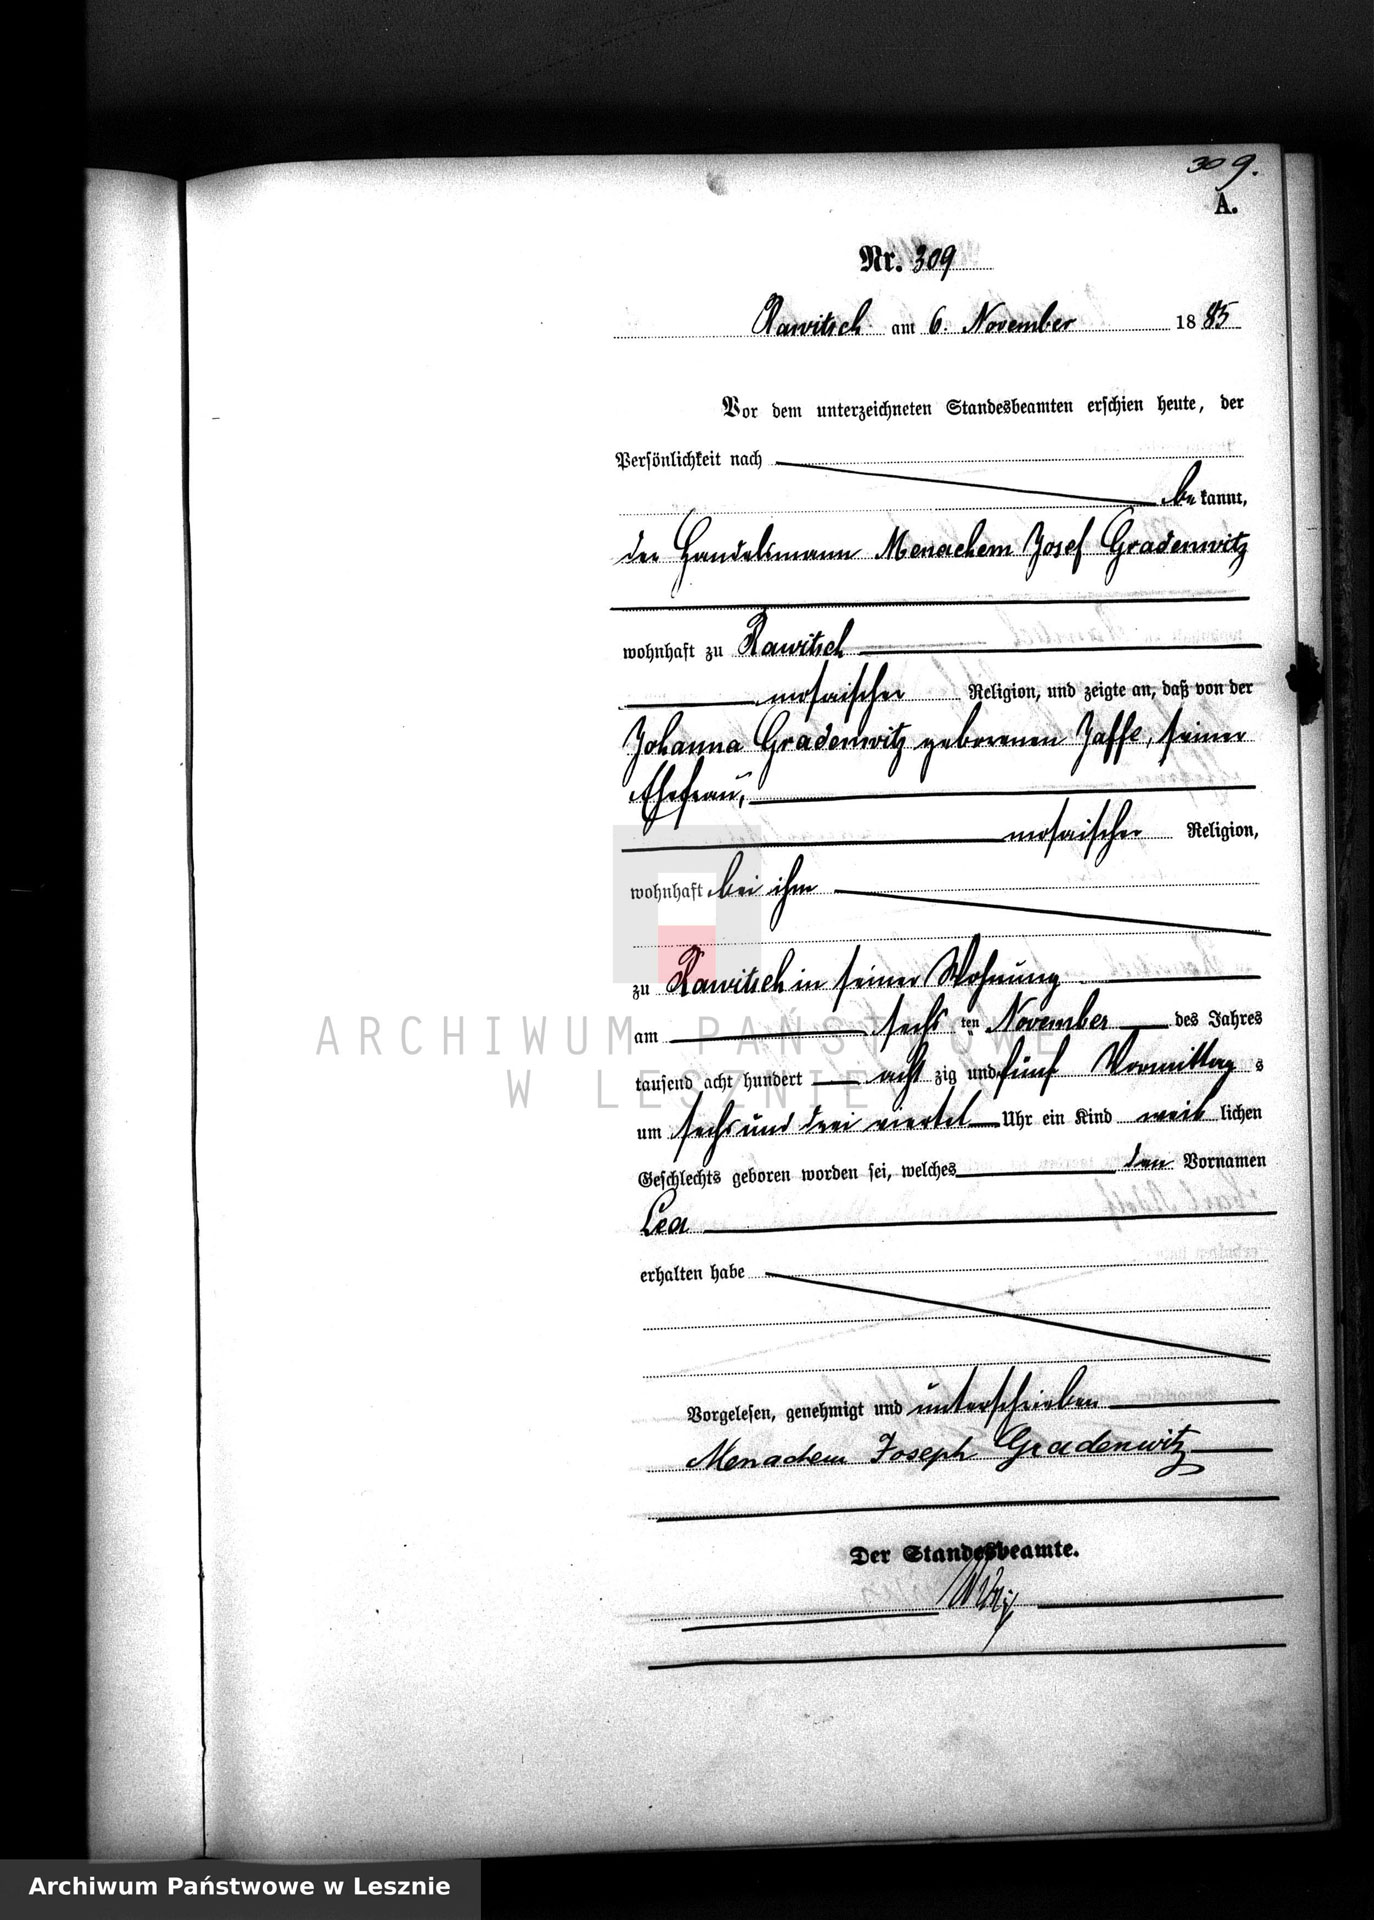 309.
A.
Nr. 309
Rawitsch am 6. November 1885
Vor dem unterzeichneten Standesbeamten erschien heute, der
Persönlichkeit nach
bekannt,
der Handelsmann Menachem Josef Gradenwitz
wohnhaft zu Rawitsch
mosaischer Religion, und zeigte an, daß von der
Johanna Gradenwitz geborenen Jaffe, seiner
Ehefrau,
mosaischer Religion,
wohnhaft bei ihm
zu Rawitsch in seiner Wohnung
am sechs ten November des Jahres
tausend acht hundert acht zig und fünf Vormittag s
um sechs und drei viertel Uhr ein Kind weib lichen
Geschlechts geboren worden sei, welches den Vornamen
Lea
erhalten habe
Vorgelesen, genehmigt und unterschrieben
Menachem Joseph Gradenwitz
Der Standesbeamte.
ARCHIWUM PAŃSTWOWE
W LESZNIE
Archiwum Państwowe w Lesznie